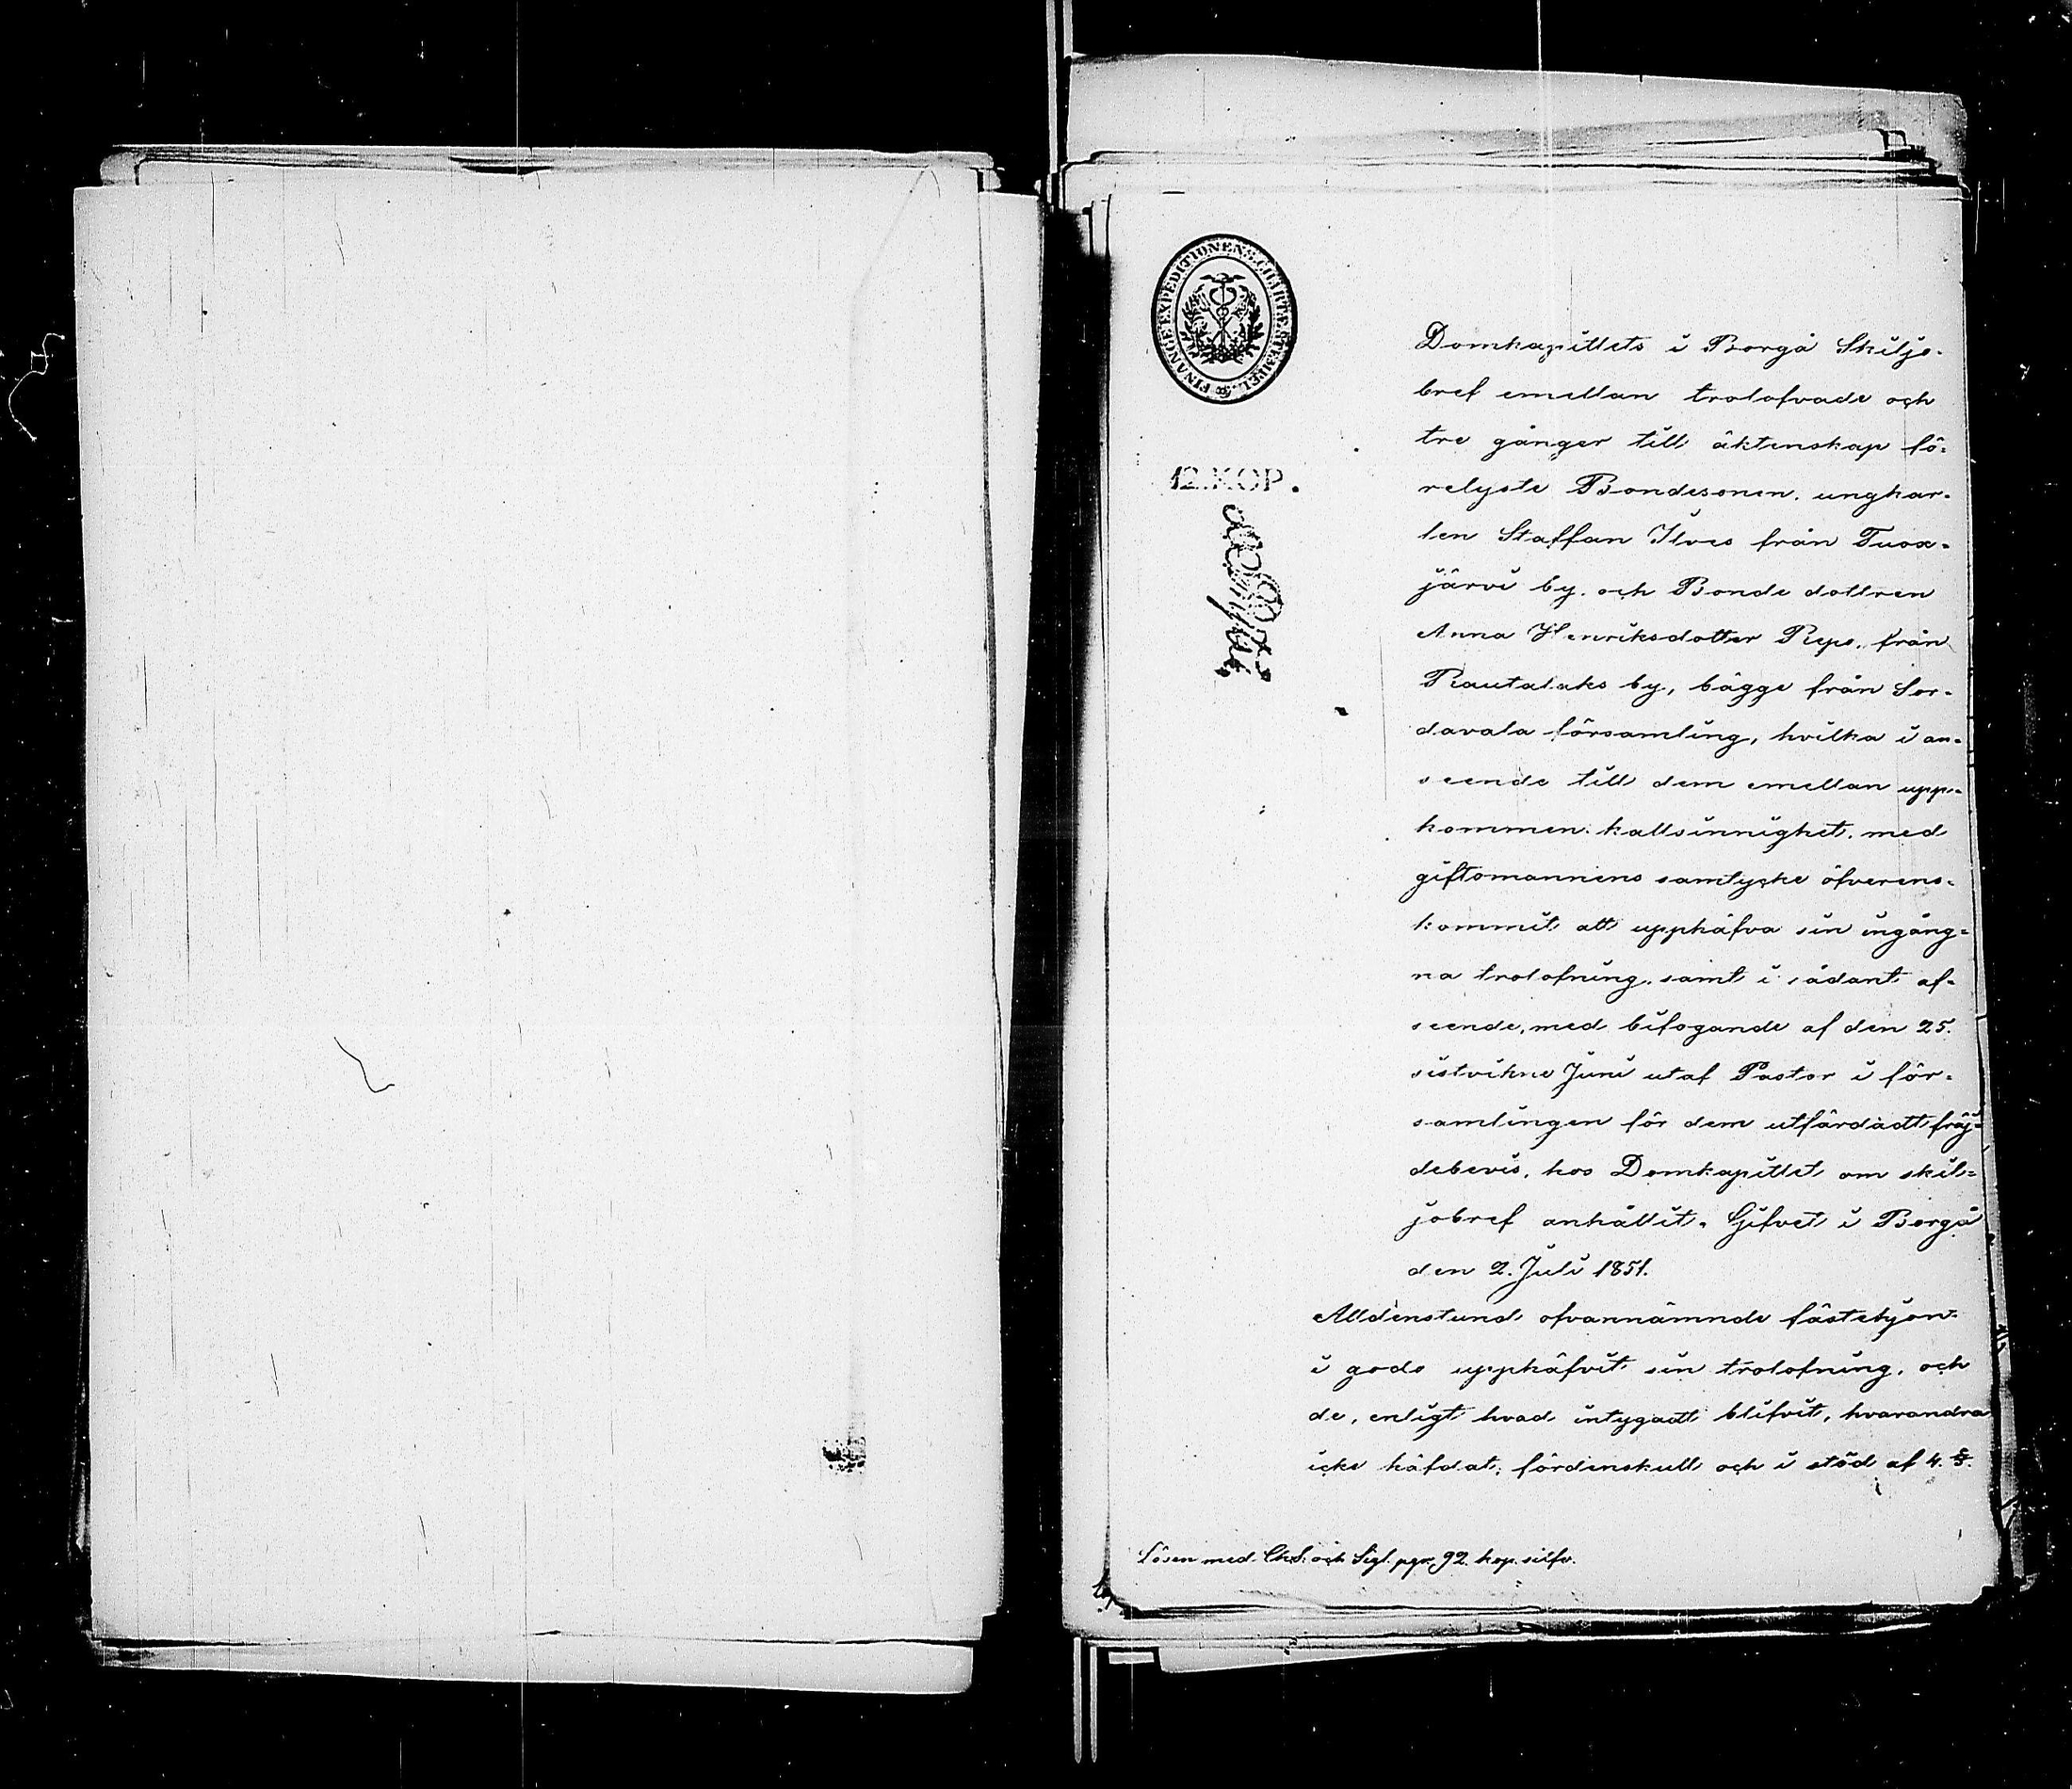 FINANCE EXPEDITIONENS CHARTÆ STEMPEL.
12. KOP.
Domkapitlets i Borgå Skiljo-
bref emellan trolofvade och
tre gånger till äktenskap fö-
relyste Bondesonen, ungkar-
len Staffan Ilves från Tuox-
järvi by, och Bonde dottren
Anna Henriksdotter Reps, från
Rautalaks by, bägge från Sor-
davala församling, hvilka i an-
seende till dem emellan upp-
kommen kallsinnighet, med
giftomannens samtycke öfverens-
kommit att upphäfva sin ingång-
na trolofning, samt i sådant af-
seende, med bifogande af den 25.
sistvikne Juni utaf Pastor i för-
samlingen för dem utfärdadt fräj-
debevis, hos Domkapitlet om skil-
jobref anhållit. Gifvet i Borgå
den 2. Juli 1851.
Alldenstund ofvannämnde fästehjon
i godo upphäfvit sin trolofning, och
de, enligt hvad intygadt blifvit, hvarandra
icke häfdat; fördenskull och i stöd af 4. §.
Lösen med Ch.S. och Sigl. ppr. 92. kop. silfv.